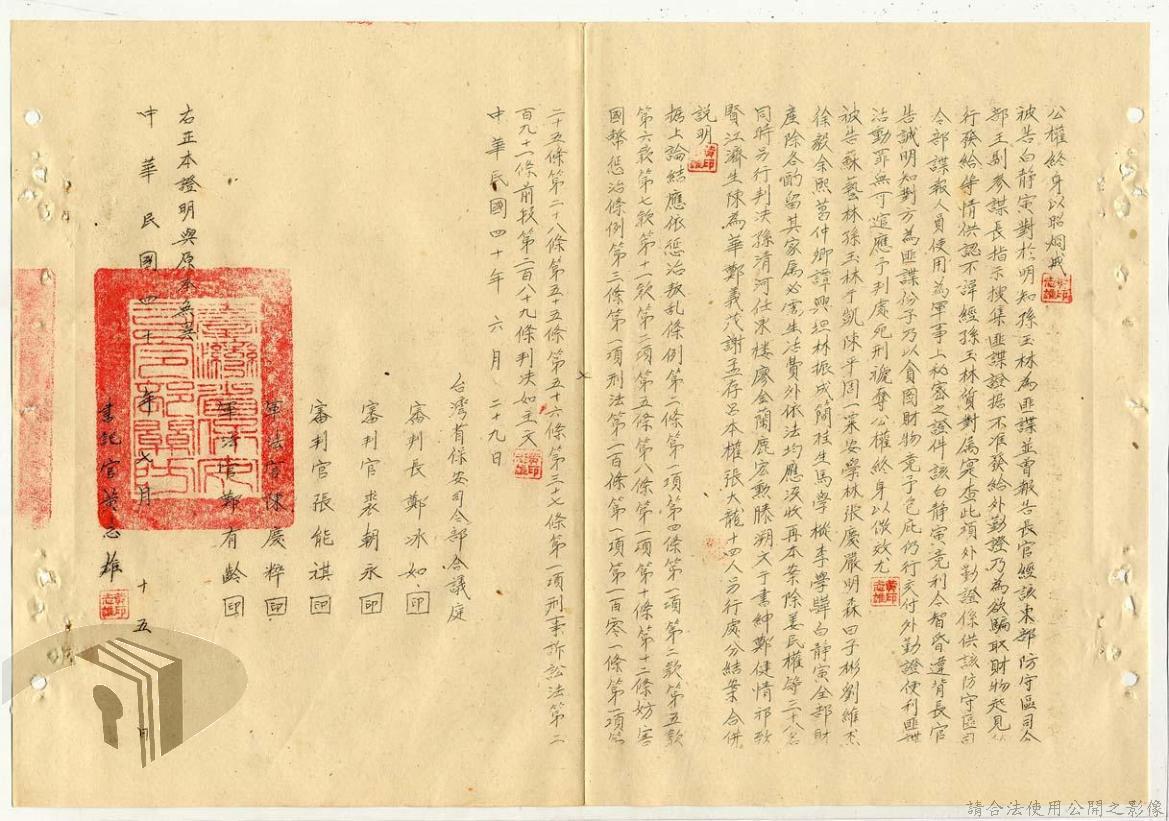 公權終身以昭炯戒
被告白靜寅對於明知孫玉林為匪諜並曾報告長官經該東部防守區司令
部王副參謀長指示搜集匪諜證据不准發給外勤證乃為欲騙取財物起見
行發給等情供認不諱經孫玉林質對屬實查此項外勤證係供該防守區司
令部諜報人員使用為軍事上秘密之證件該白靜寅竟利令智昏違背長官
告誡明知對方為匪諜份子乃以貪圖財物竟予包庇仍行交付外勤證便利匪諜
活動罪無可逭應予判處死刑褫奪公權終身以儆效尤
被告蘇藝林孫玉林于凱陳平周一粟安學林張慶嚴明森田子彬劉維杰
徐毅余熙萬仲卿譚興坦林振成簡桂生馬學樅李學驊白靜寅全部財
產除各酌留其家屬必需生活費外依法均應沒收再本案除姜民權等三十八名
同時另行判決孫清河任東樓廖金蘭鹿宏勳滕溯文于書紳鄭健情祁敬
賢江濟生陳為華鄭義茂謝孟存呂本權張大龍十四人另行處分結案合併
說明
据上論結應依懲治叛乱條例第二條第一項第四條第一項第二款第五款
第六款第七款第十一款第二項第五條第八條第一項第十條第十二條妨害
國幣懲治條例第三條第一項刑法第二百條第一項第二百零一條第一項第
二十五條第二十八條第五十五條第五十六條第三十七條第一項刑事訴訟法第二
百九十一條前段第二百八十九條判決如主文
中華民國四十年六月二十九日
台灣省保安司令部合議庭
審判長鄭冰如 印
審判官裘朝永 印
審判官張能祺 印
軍法官陳慶粹 印
軍法官鄭有齡 印
右正本證明與原本無異
中華民國四十年七月十五日
書記官黃志雄
請合法使用公開之影像